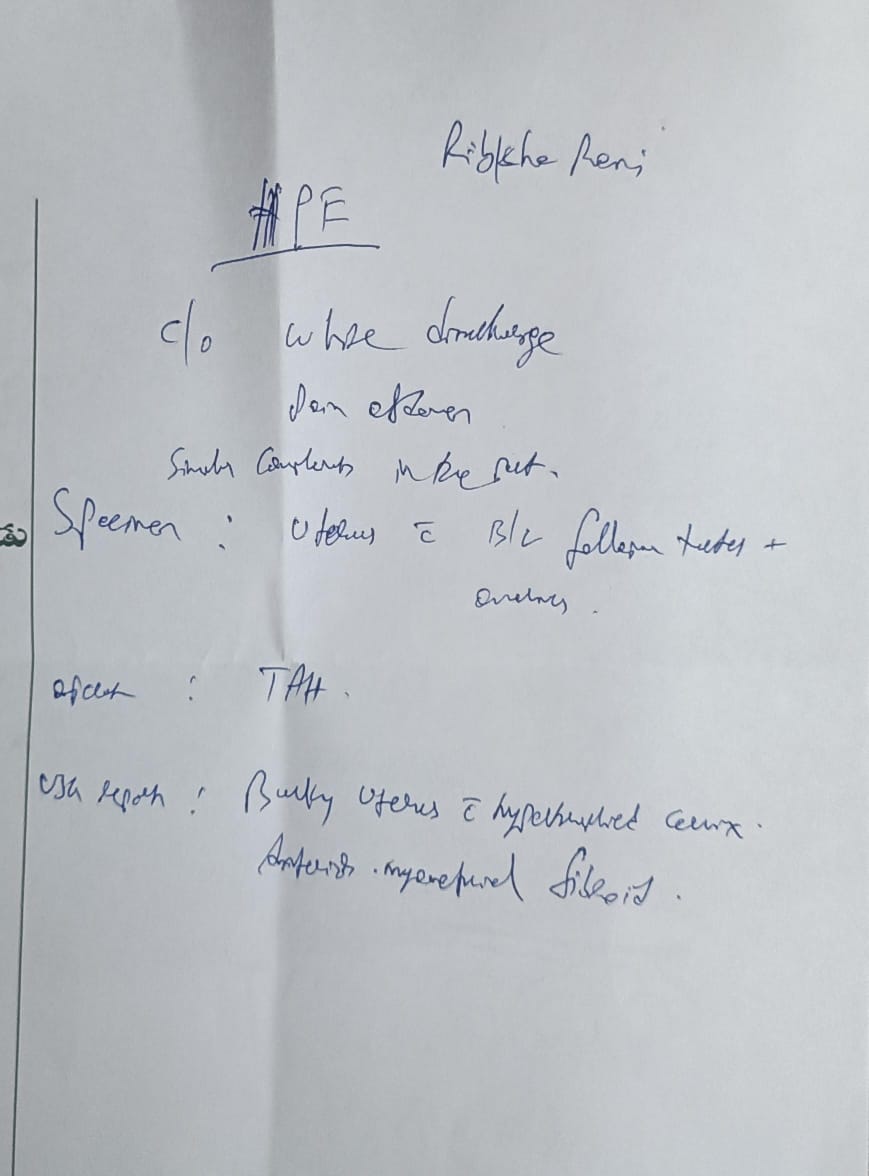 HPE
c/o white discharge
Pain abdomen
Similar Complaints in the past.
Specimen : Uterus c̄ B/L fallopian tubes +
ovaries.
: TAH.
USG report : Bulky Uterus c̄ hypertrophied cervix.
Anterior myometrial fibroid.